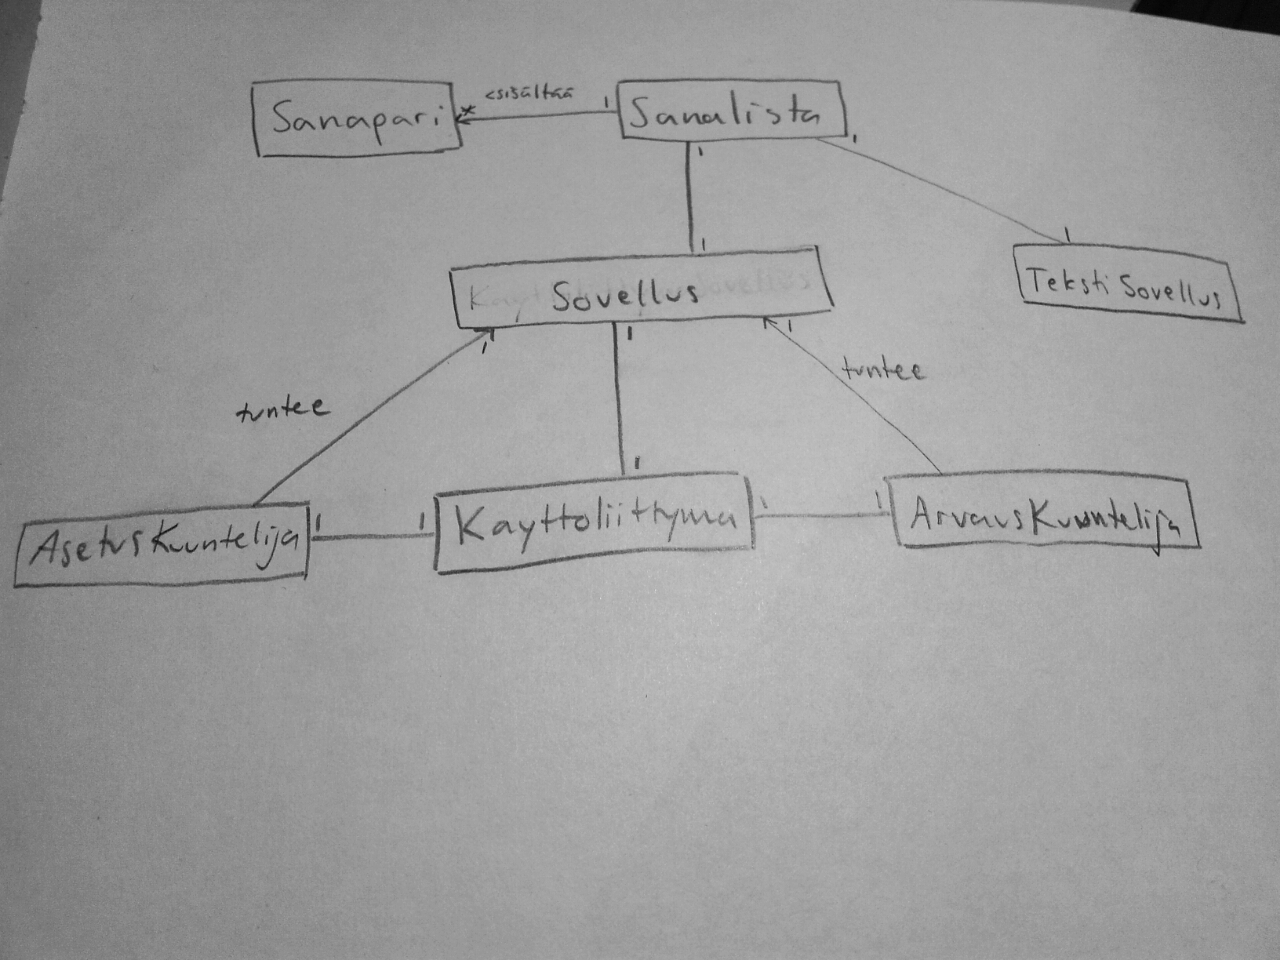 Sanapari
*
<sisältää
1
Sanalista
1
1
1
1
TekstiSovellus
Sovellus
1
1
1
tuntee
tuntee
1
AsetusKuuntelija
1
1
Kayttoliittyma
1
1
ArvausKuuntelija